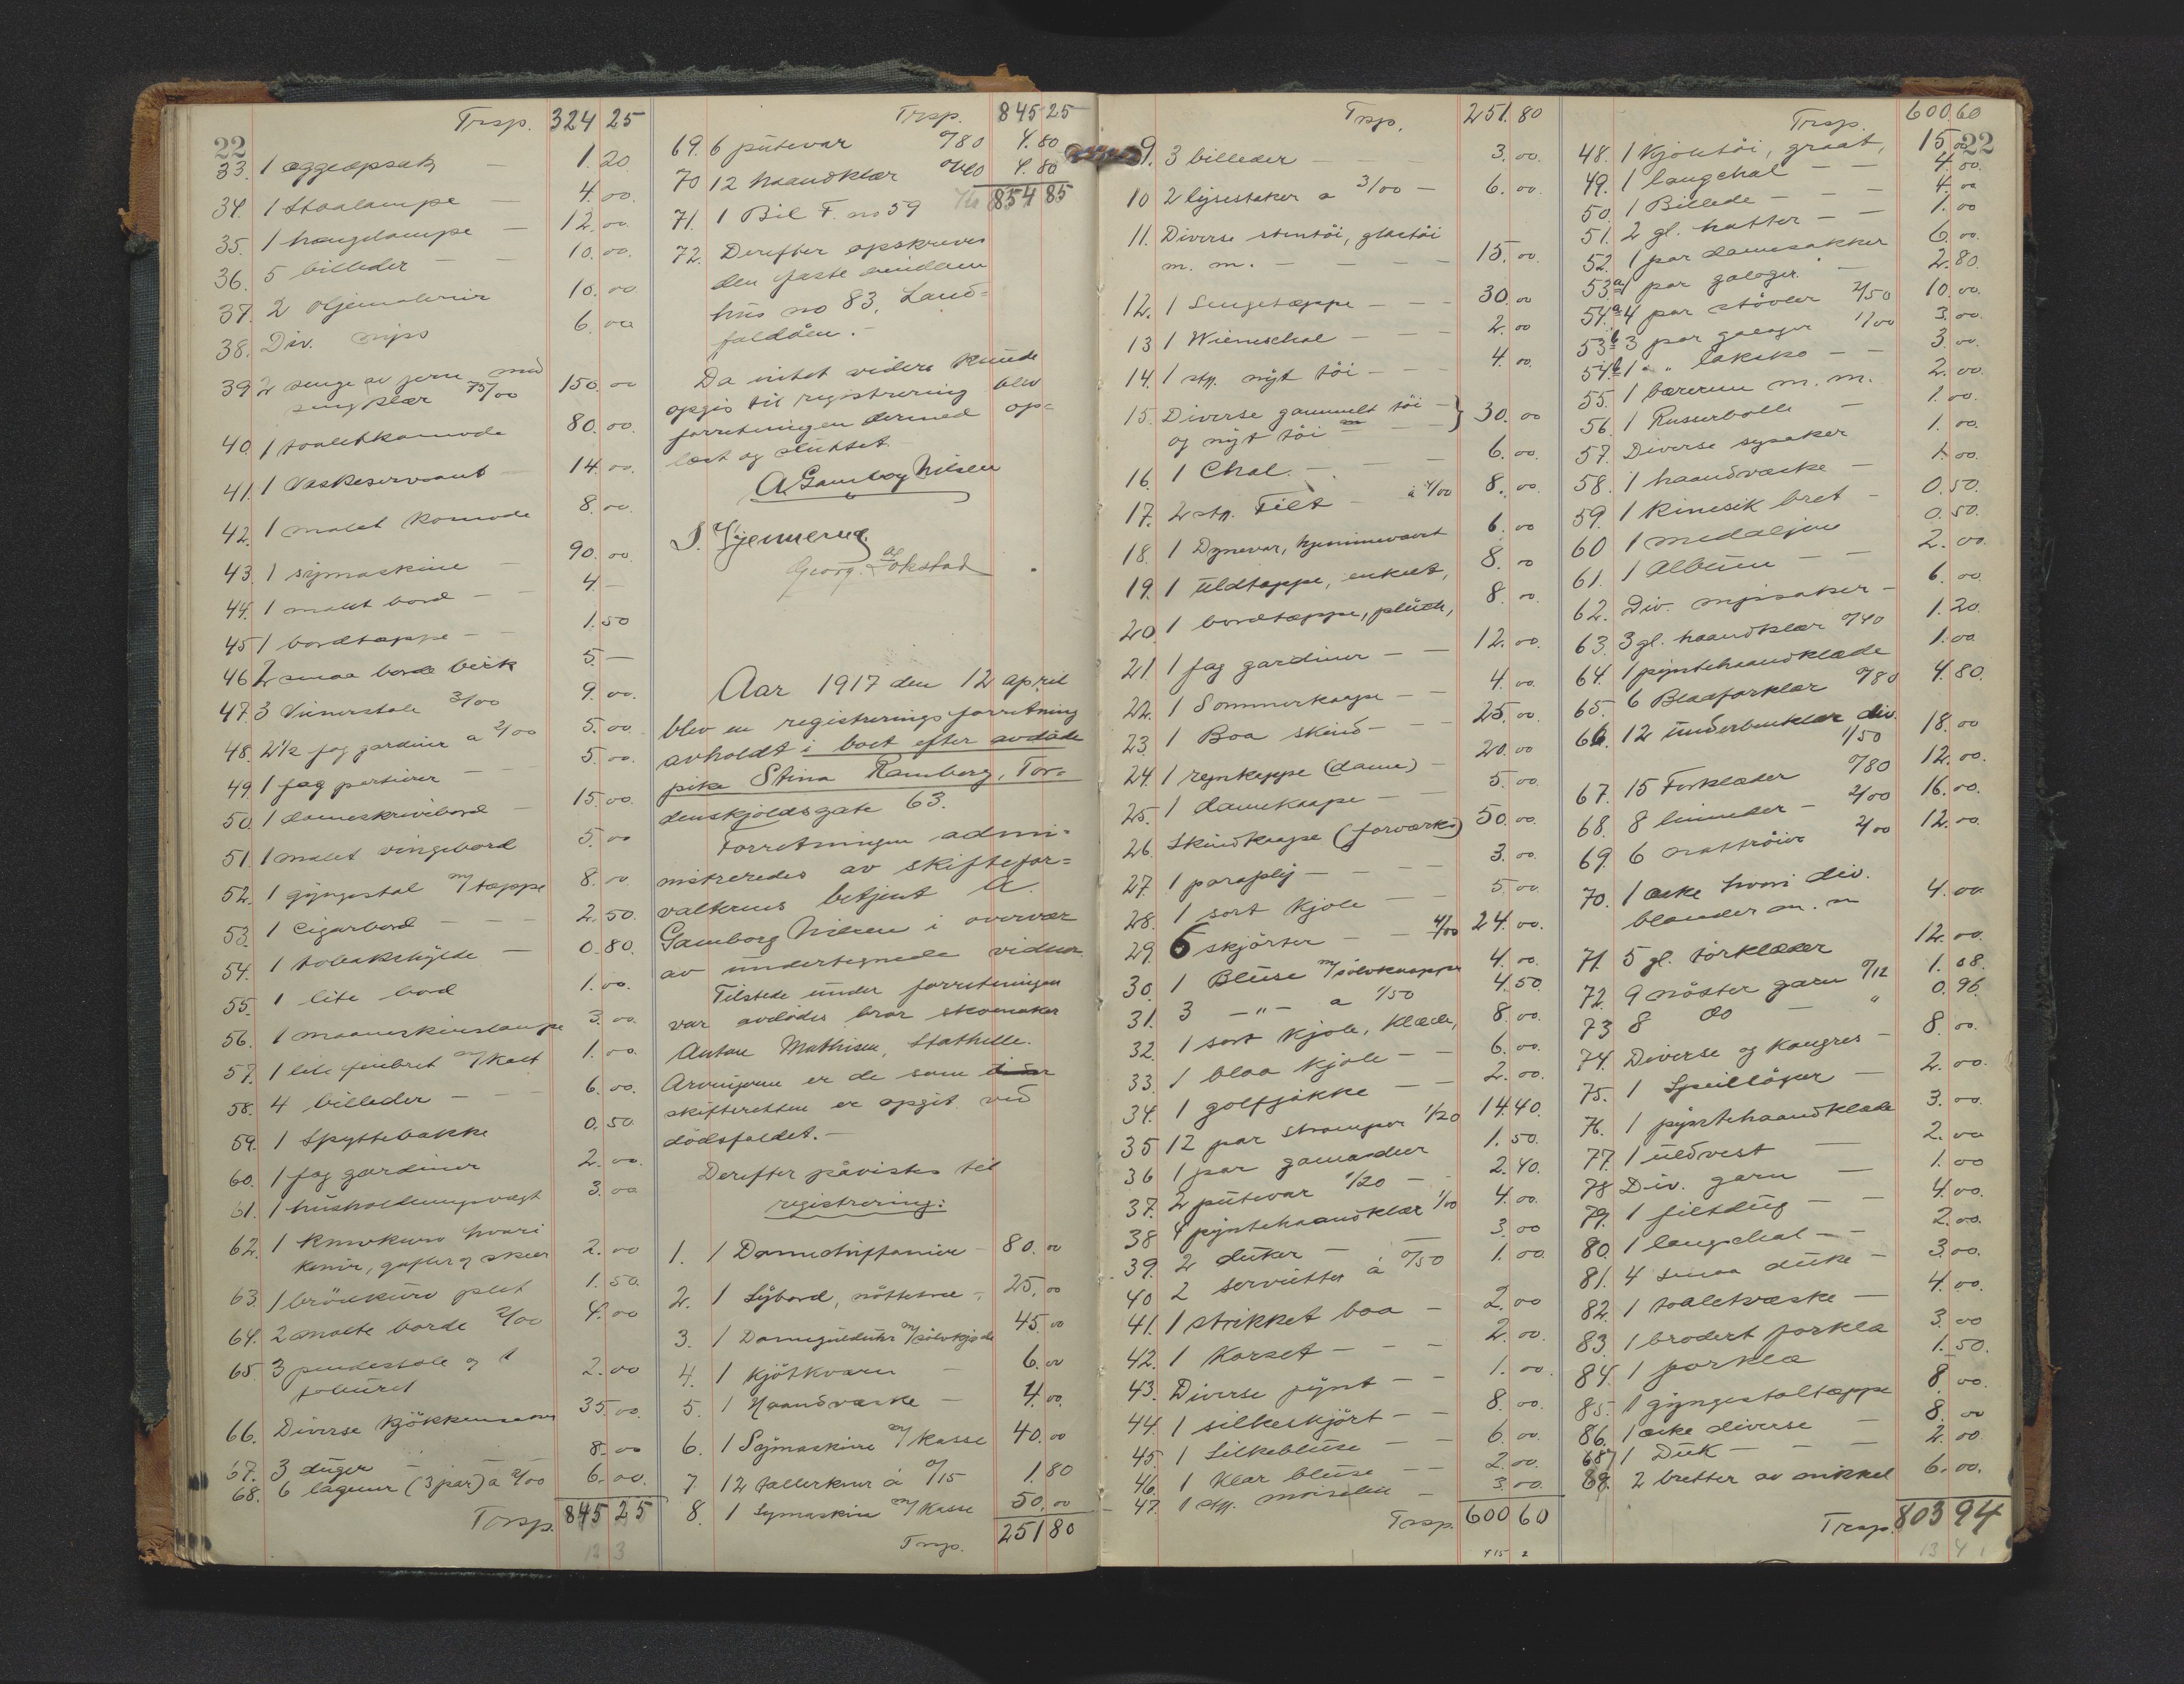 22
Trsp. 324 25
33. 1 æggeopsats — 1.20
34. 1 Staalampe — 4.00
35. 1 hængelampe — 12.00
36. 5 billeder — 10.00
37. 2 oljemalerier 10.00
38. Div. nips 6.00
39 2 senge av jern med
sengklær 75/00 150.00
40. 1 toaletkomode 80.00
41. 1 Vaskeservant 14.00
42. 1 malet Komode 8.00
43. 1 symaskine — 90.00
44. 1 malet bord — 4.—
45 1 bordtæppe — 1.50
46 2 smaa borde birk 5.—
47. 3 Vienerstole 3/00 9.00
48. 2 1/2 fag gardiner a 2/00 5.00
49. 1 fag portierer — 5.00
50. 1 dameskrivebord — 15.00
51. 1 malet vingebord 5.00
52. 1 gyngestol m/tæppe 8.00
53. 1 Cigarbord — 2.50
54. 1 tobakshylde — 0.80
55. 1 lite bord 1.00
56. 1 maaneskinslampe 3.00
57. 1 lite 1.00
58. 4 billeder — 6.00
59. 1 Spyttebakke 0.50
60. 1 fag gardiner 2.00
61. 1 husholdningsvægt 3.00
62. 1 Knivkurv hvori
kniver, gafler og skeer 2.00
63. 1 brödkurv plet 1.50
64. 2 malte borde 2/00 4.00
65. 3 pindestole og 1
taburet 2.00
66. Diverse Kjökkensaker 35.00
67. 3 duger — 8.00
68. 6 lagener (3 par) a 2/00 6.00
Trsp. 845 25
Trsp. 845 25
69. 6 putevar 0/80 4.80
70 12 haandklær 0/40 4.80
854 85
71. 1 Bil F. no 59
72. Derefter opskreves
den faste eiendom
hus no 83, Land-
faldöen.—
Da intet videre kunde
opgis til registrering blev
forretningen dermed op-
læst og sluttet.
A. Gamborg Nilsen
Georg. Lokstad
Aar 1917 den 12 april
blev en registreringsforretning
avholdt i boet efter avdöde
pike Stina Ramberg, Tor-
denskjoldsgate 63.
Forretningen admi-
nistreredes av skiftefor-
valterens betjent A.
Gamborg Nilsen i overvær
av undertegnede vidner.
Tilstede under forretningen
var avdödes bror skomaker
Anton Mathisen, Stathelle.
Arvingerne er de som
skifteretten er opgit ved
dödsfaldet.—
Derefter påvistes til
registrering:
1. 1 Damechiffonier — 80.00
2. 1 Sybord, nöttetræ — 25.00
3. 1 Dameguldur m/sölvkjæde 45.00
4. 1 Kjötkvern — 6.00
5. 1 Haandvæske — 4.00
6. 1 Symaskine m/Kasse 40.00
7 12 tallerkner á 0/15 1.80
8. 1 Symaskine m/Kasse 50.00
Trsp. 251 80
22
Trsp. 251.80
9. 3 billeder — 3.00
10 2 lysestaker a 3/00 — 6.00
11. Diverse stentöi, glastöi
m. m. — 15.00
12. 1 Sengetæppe — 30.00
13 1 Wienerschal — 2.00
14. 1 stk. nyt töi — 4.00
15. Diverse gammelt töi —
og nyt töi — 30.00
16. 1 Chal. — 6.00
17. 2 stk. Filt — á 4/00 8.00
18. 1 Dynevar, hjemmevævet 6.00
19. 1 Uldtæppe, enkelt, 8.00
20. 1 bordtæppe, plüsch, 8.00
21. 1 fag gardiner — 12.00
22. 1 Sommerkaape — 4.00
23 1 Boa skind — 25.00
24 1 regnkappe (dame) — 20.00
25. 1 damekaape — 5.00
26. Skindkaape (forværks) 50.00
27. 1 paraply — 3.00
28. 1 sort Kjole — 5.00
29. 6 skjörter — 4/00 24.00
30. 1 Bluse m/sölvknapper 4.00
31. 3 —"— a 1/50 4.50
32. 1 sort Kjole, Klæde, 8.00
33. 1 blaa Kjole — 6.00
34. 1 golfjakke — 2.00
35 12 par strømper 1/20 14.40
36 1 par gamascher 1.50
37. 2 putevar 1/20 — 2.40
38 4 pyntehaandklær 1/00 4.00
39. 2 duker — 3.00
40 2 servietter á 0/50 1.00
41. 1 strikket boa — 2.00
42. 1 Korset — 2.00
43. Diverse pynt — 1.00
44. 1 silkeskjört — 8.00
45. 1 Silkebluse — 6.00
46. 1 Klar bluse — 2.00
47. 1 stk. — 3.00
Trsp. 600 60
Trsp. 600.60
48. 1 Kjoletöi, graat, 15.00
49. 1 langchal — 4.00
50. 1 Billede — 4.00
51. 2 gl. hatter — 1.00
52. 1 par damesakker 6.00
53.a 1 par galoger — 2.80
54.a 4 par stövler 2/50 10.00
53b 3 par galoger 1/00 3.00
54.b 1 " " laksko — 3.00
55. 1 m. m. 2.00
56. 1 Russerbolle — 1.00
57. Diverse sysaker 1.00
58. 1 haandvæske — 1.00
59. 1 Kinesisk bret — 0.50
60 1 medaljon 0.50
61. 1 Album — 2.00
62. Div. nipssaker — 6.00
63. 3 gl. haandklær 0/40 1.20
64. 1 pyntehaandklæde 1.00
65. 6 Bladforklær 0/80 4.80
66. 12 underbenklær div.
1/50 18.00
67. 15 Forklæder 0/80 12.00
68. 8 linneder — 2/00 16.00
69. 6 nattröier 2/00 12.00
70. 1 æske hvori div.
blonder m. m 4.00
71. 5 gl. törklæder 12.00
72. 9 nöster garn 0/12 1.08
73 8 do — " 0.96
74. Diverse og Kongres — 8.00
75. 1 Speillöper — 2.00
76. 1 pyntehaandklæde 3.00
77. 1 uldvest — 2.00
78 Div. garn — 1.00
79. 1 filtdug — 4.00
80. 1 langschal — 2.00
81. 4 smaa duke — 3.00
82. 1 toaletvæske — 4.00
83. 1 brodert forkla 3.00
84. 1 forkla 1.50
85. 1 gyngestoltæppe 8.00
86. 1 æske diverse — 8.00
87 1 Duk — 2.00
88. 2 bretter av nikkel 6.00
Trsp. 803 94